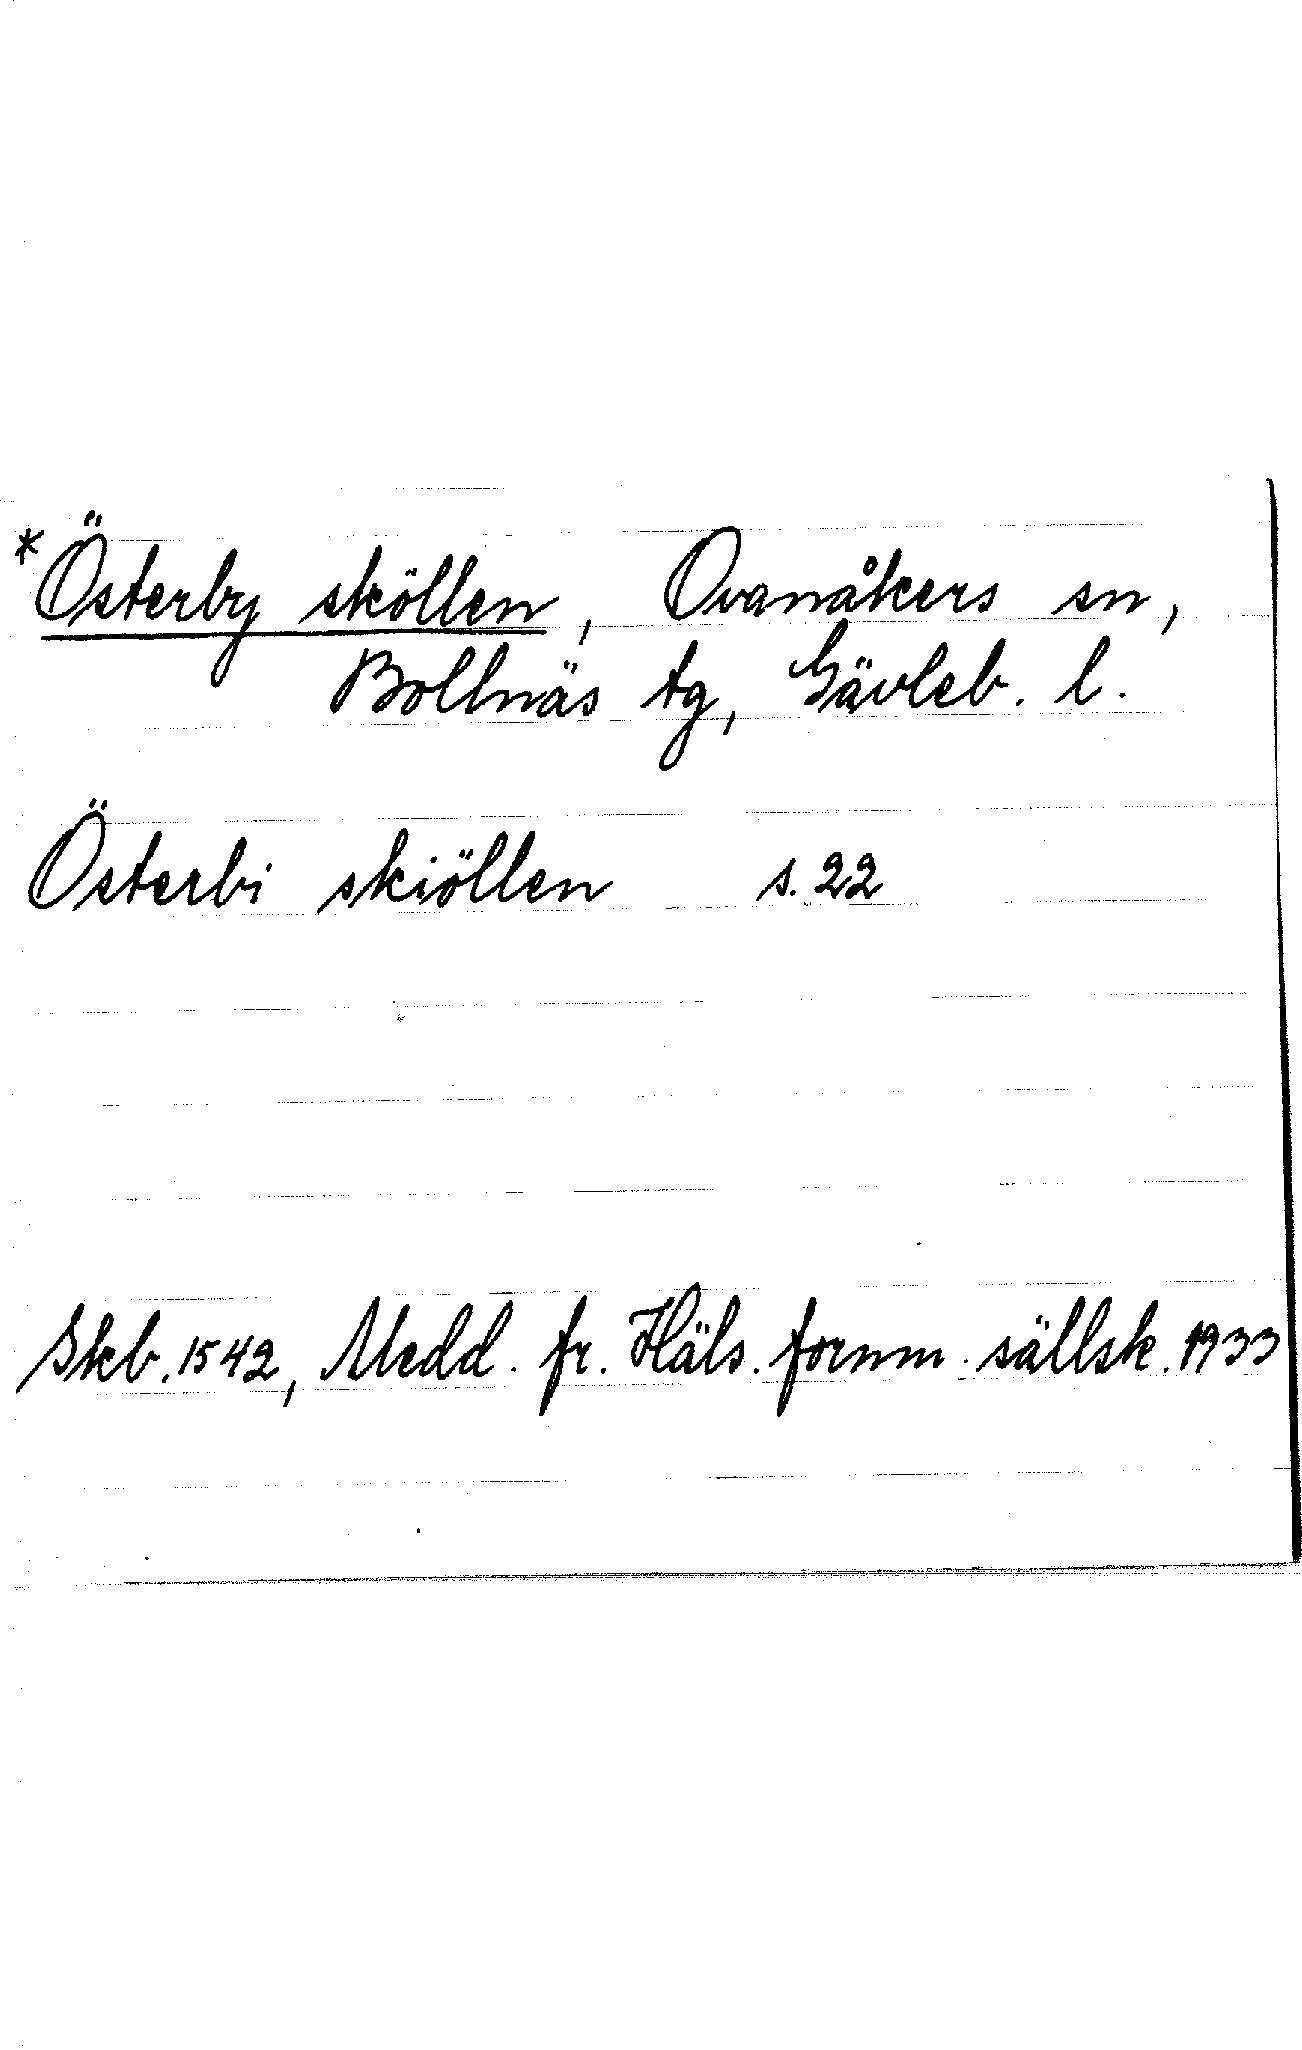 *Österby sköllen, Ovanåkers sn,
Bollnäs tg, Gävleb. l.
Österbi skiöllen s. 22
Skb. 1542, Medd. fr. Häls. fornm. sällsk. 1933